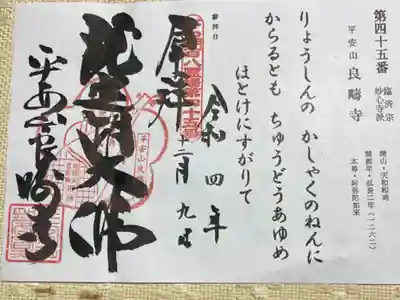 第四十五番
臨済宗
妙心寺派
平安山 良疇寺
開創年・弘長二年(一二六二)
本尊・阿弥陀如来
りょうしんの かしゃくのねんに
からるとも ちゅうどうあゆめ
ほとけにすがりて
令和 四年
十二月 九日
奉拝
百八霊場第四十五番
琵琶湖大佛
平安山良疇寺